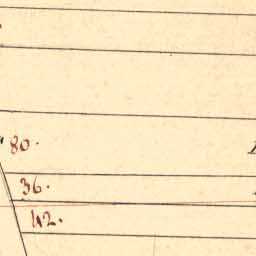 80.
36.
42.